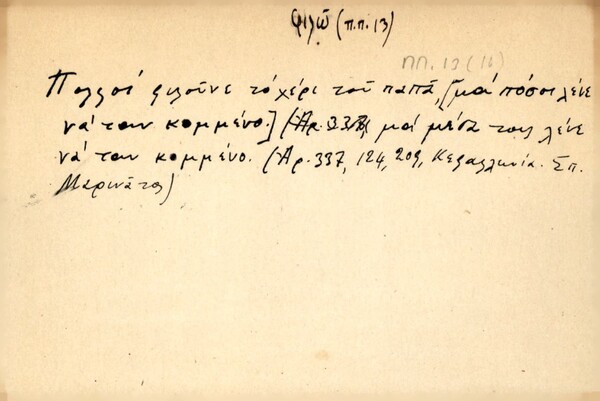 φιλῶ (π.π. 13)
ΠΠ. 13 (16)
Πολλοί φιλοῦνε τό χέρι τοῦ παπᾶ, [μά πόσοι λένε
νά 'ταν κομμένο.] (Ἀρ. μά μέσα τους λένε
νά 'ταν κομμένο. (Ἀρ. 337, 124, 209, Κεφαλληνία. Σπ.
Μαρινᾶτος)